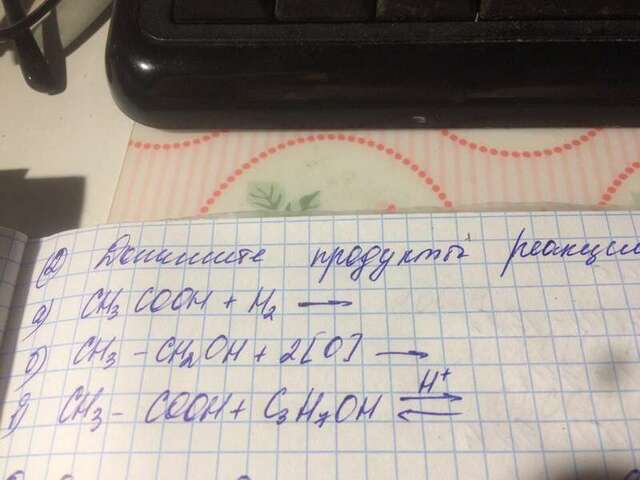 2) Допишите продукты реакции
а) CH₃COOH + H₂ →
б) CH₃ - CH₂OH + 2[O] →
в) CH₃ - COOH + C₃H₇OH H⁺ ⇌